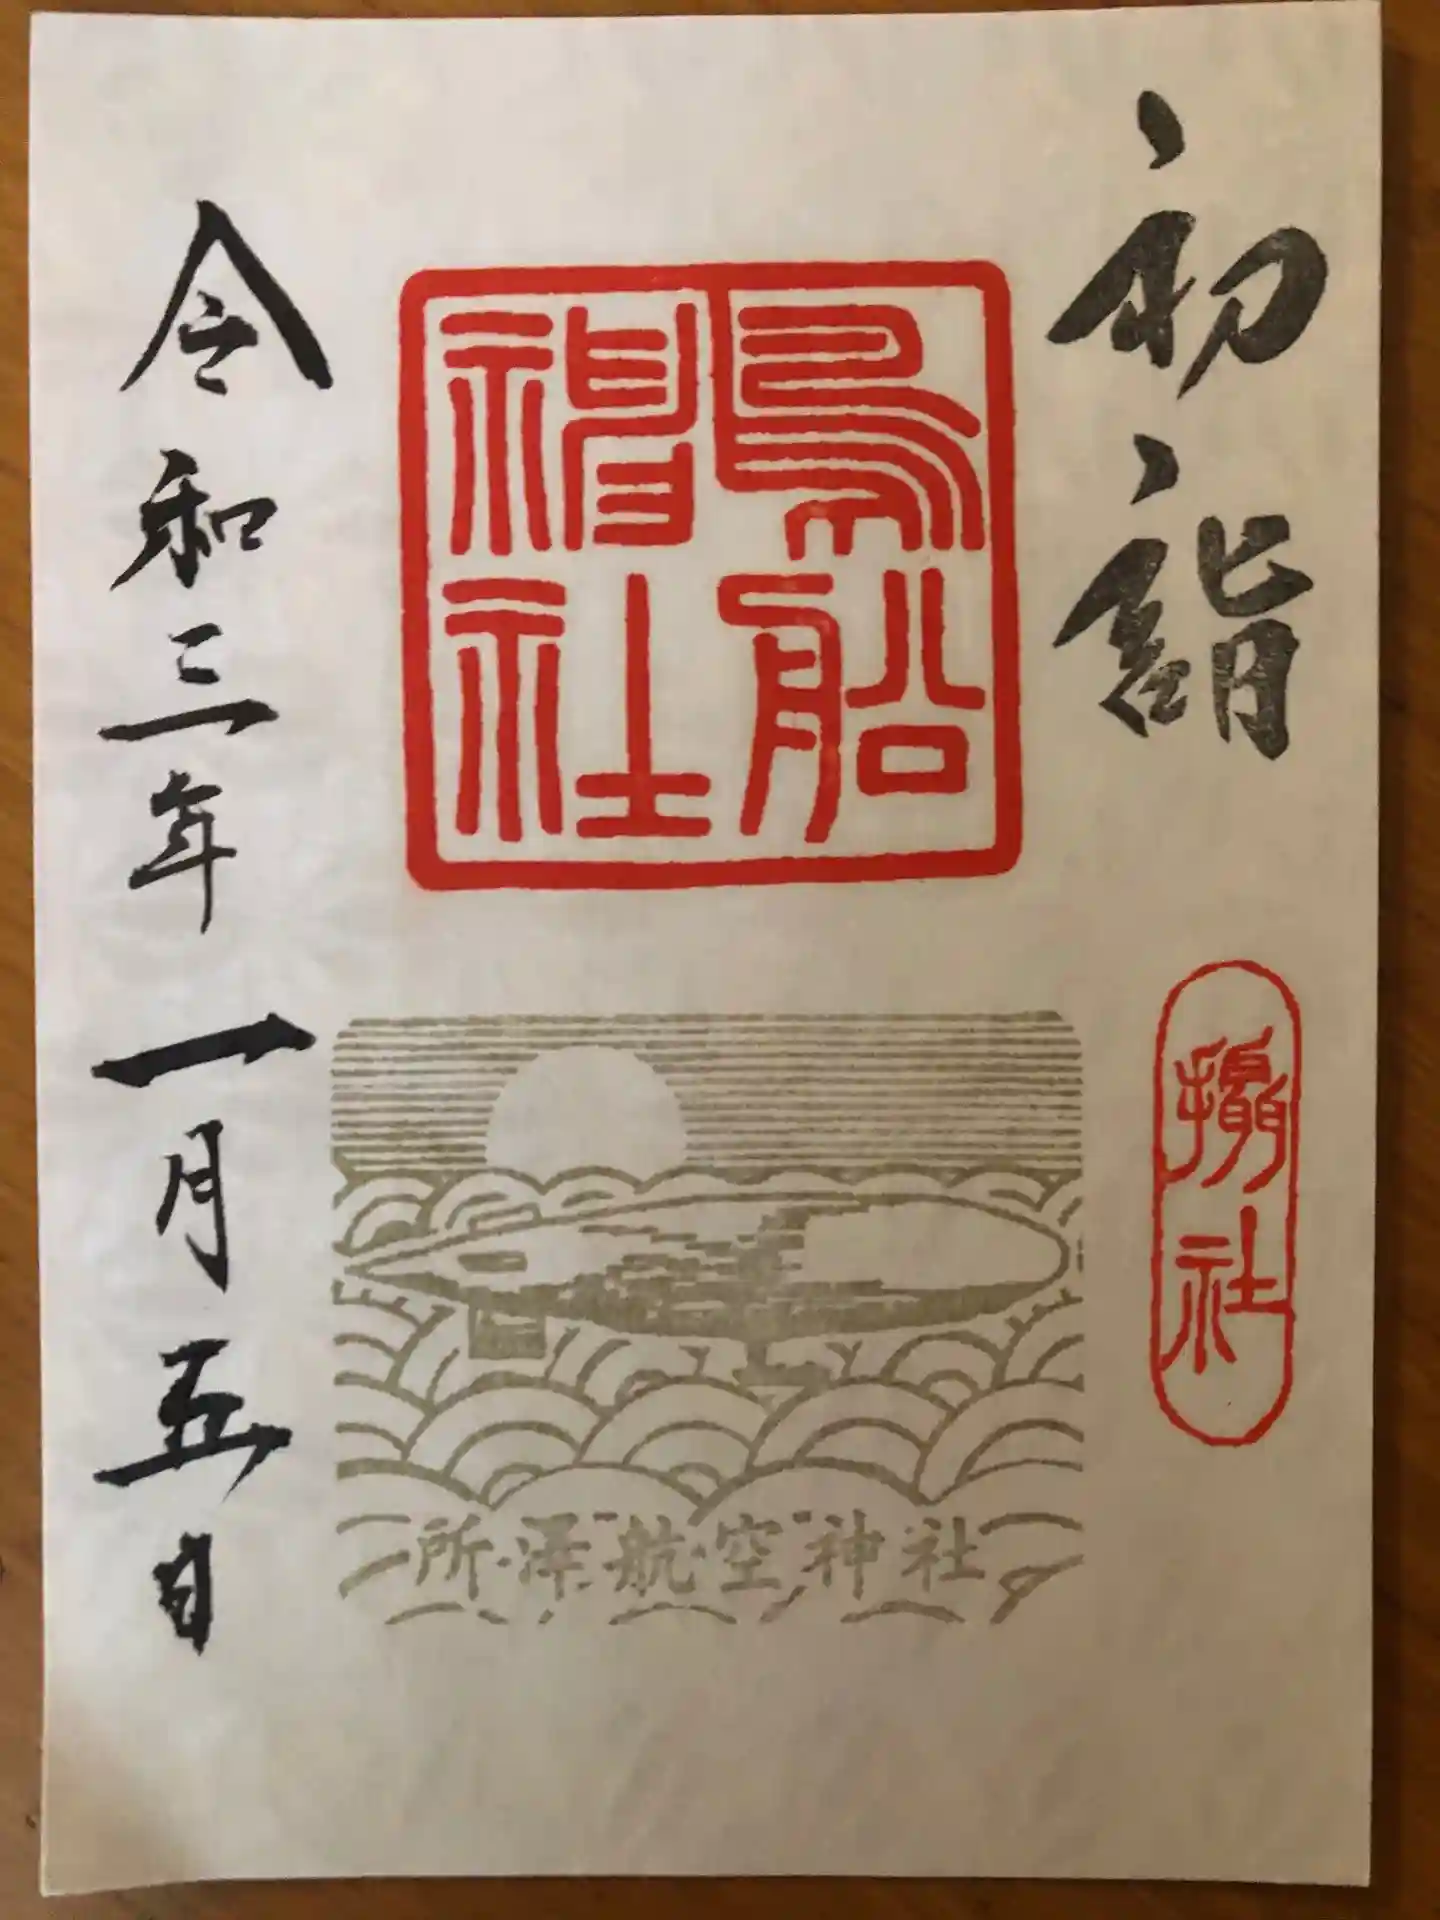 初詣
摂社
鳥船
神社
所澤航空神社
令和三年一月五日